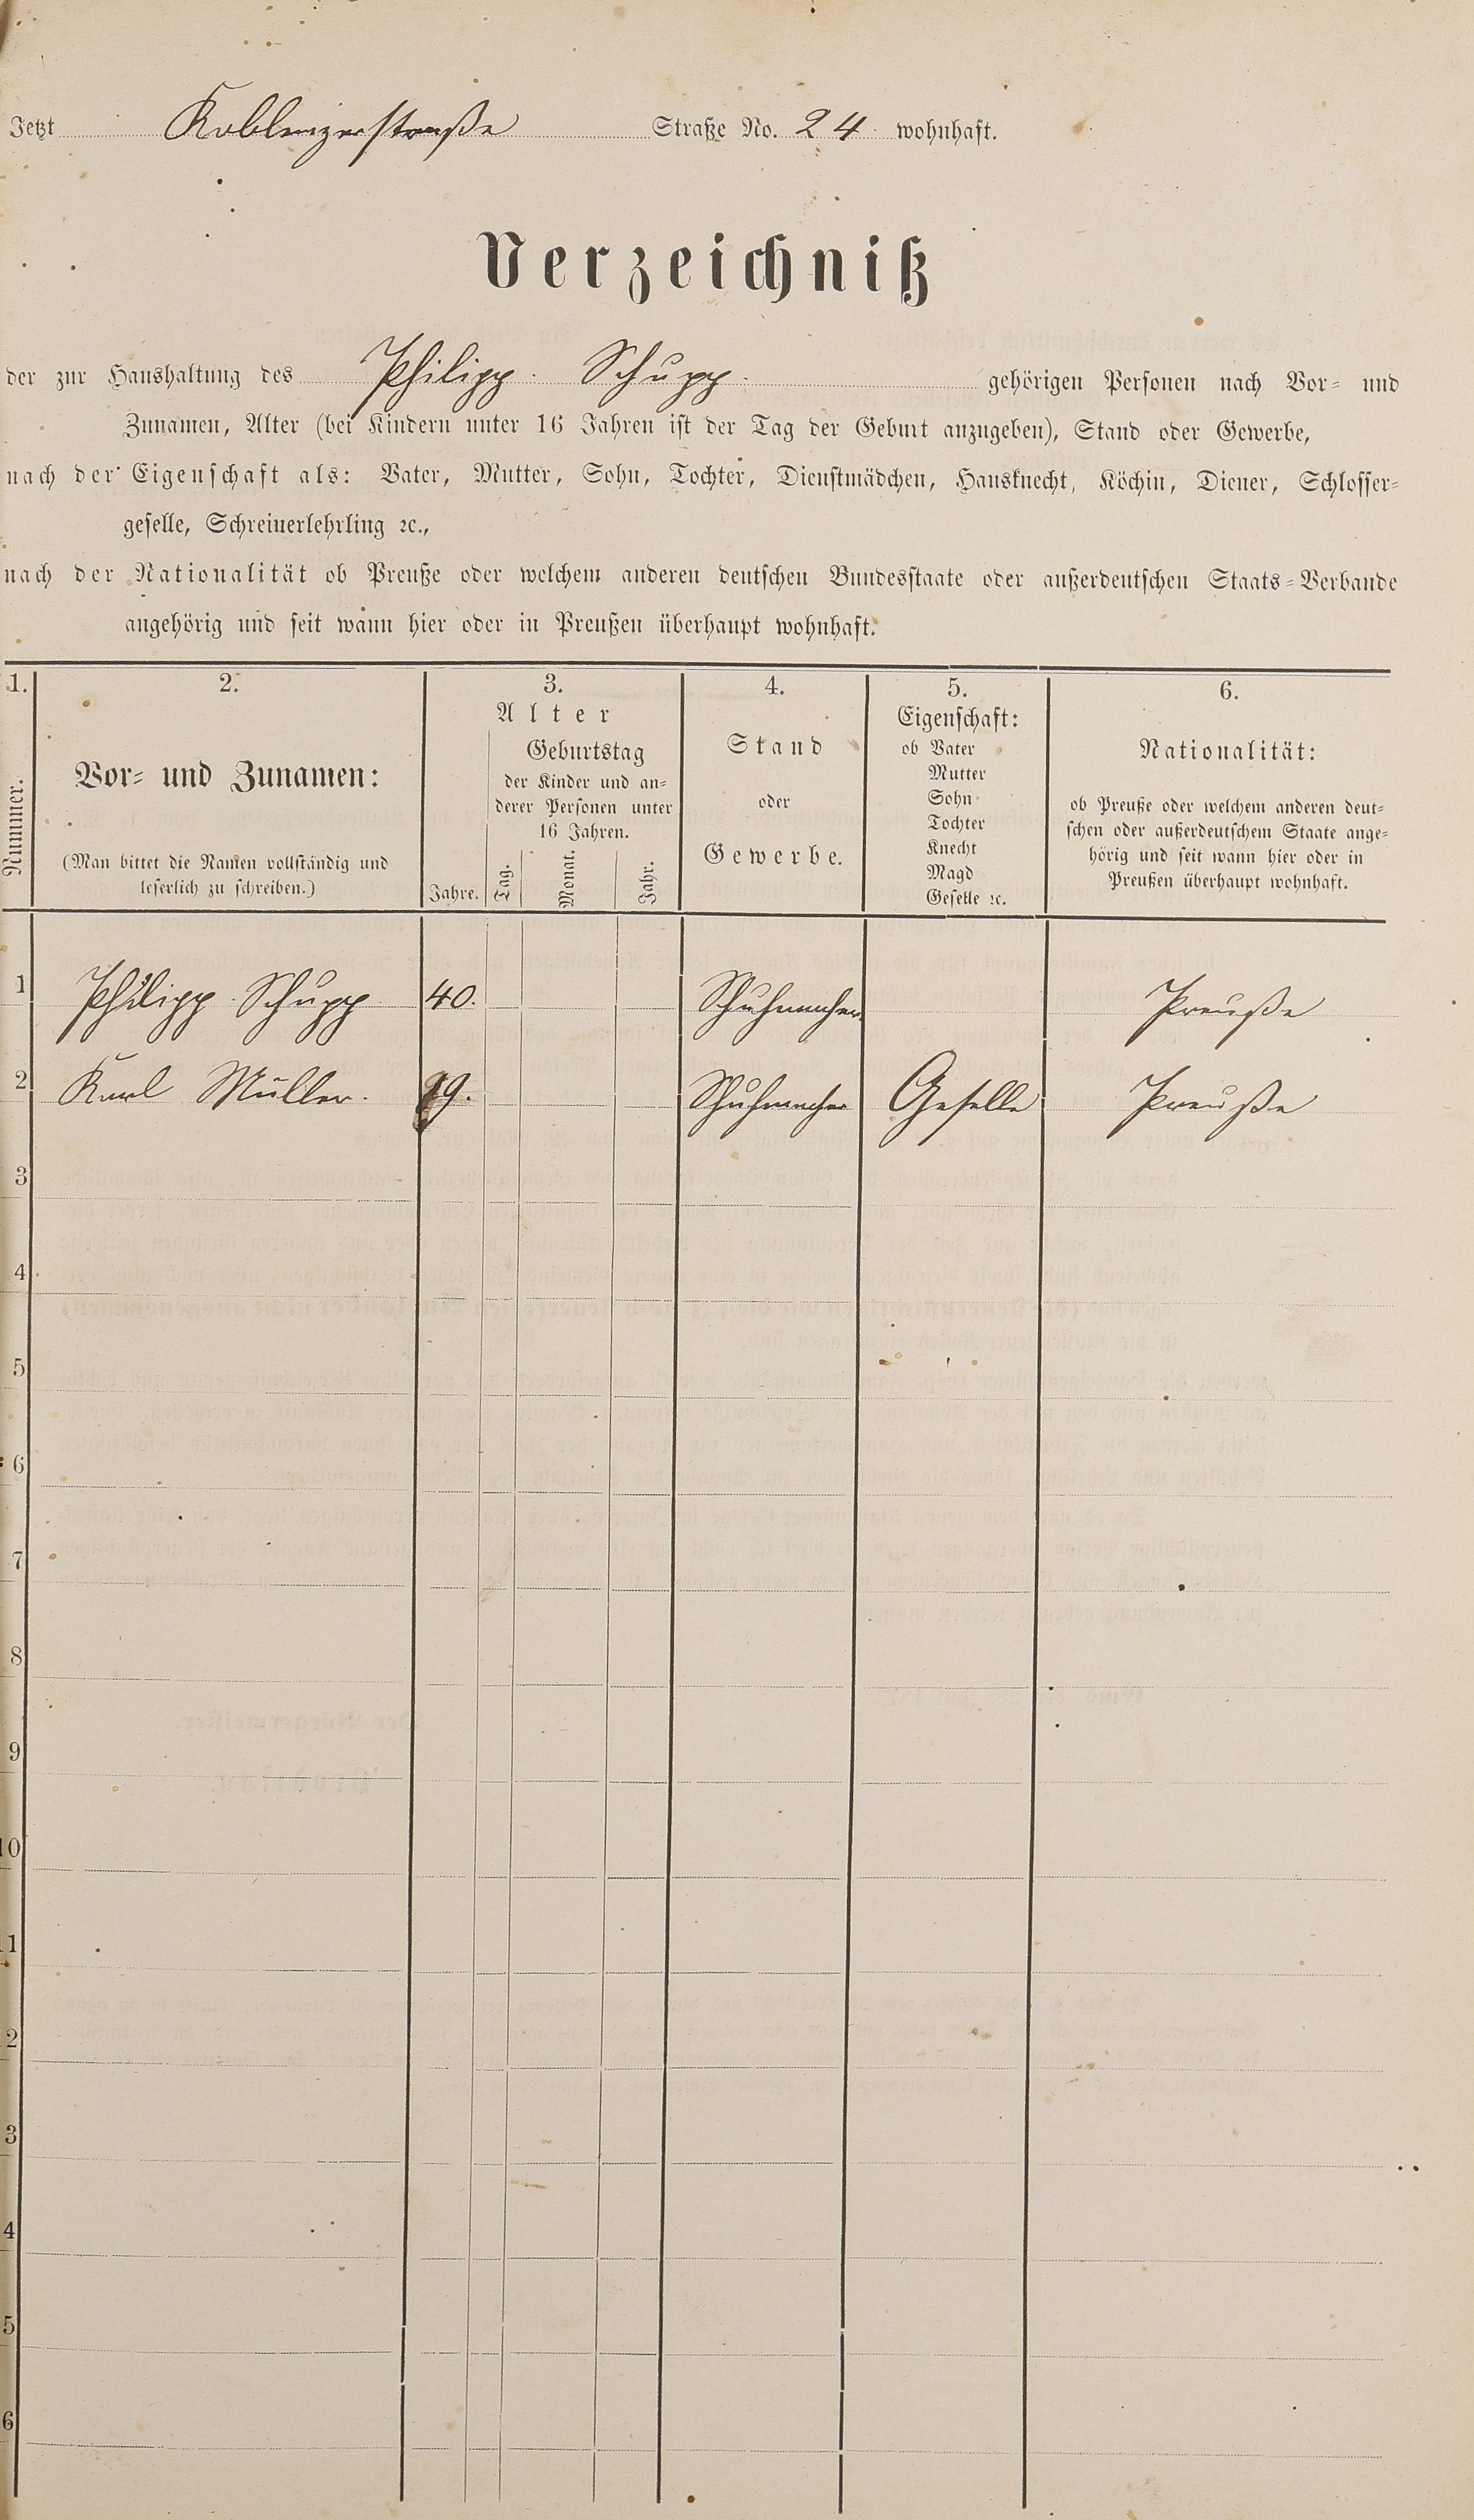 Jetzt Koblenzerstraße Straße No. 24 wohnhaft.
Verzeichniß
der zur Haushaltung des Philipp Schupp. gehörigen Personen nach Vor- und
Zunamen, Alter (bei Kindern unter 16 Jahren ist der Tag der Geburt anzugeben), Stand oder Gewerbe,
nach der Eigenschaft als: Vater, Mutter, Sohn, Tochter, Dienstmädchen, Hausknecht, Köchin, Diener, Schlosser-
geselle, Schreinerlehrling ꝛc.,
nach der Nationalität ob Preuße oder welchem anderen deutschen Bundesstaate oder außerdeutschen Staats-Verbande
angehörig und seit wann hier oder in Preußen überhaupt wohnhaft.
1. 2. 3. 4. 5. 6.
Nummer.
Vor- und Zunamen:
(Man bittet die Namen vollständig und
leserlich zu schreiben.)
Alter
Jahre.
Geburtstag
der Kinder und an-
derer Personen unter
16 Jahren.
Tag. Monat. Jahr.
Stand
oder
Gewerbe.
Eigenschaft:
ob Vater
Mutter
Sohn
Tochter
Knecht
Magd
Geselle ꝛc.
Nationalität:
ob Preuße oder welchem anderen deut-
schen oder außerdeutschem Staate ange-
hörig und seit wann hier oder in
Preußen überhaupt wohnhaft.
1 Philipp Schupp 40. Schuhmacher Preuße
2 Karl Müller. 19. Schuhmacher Geselle Preuße
3
4
5
6
7
8
9
10
11
2
3
4
5
6